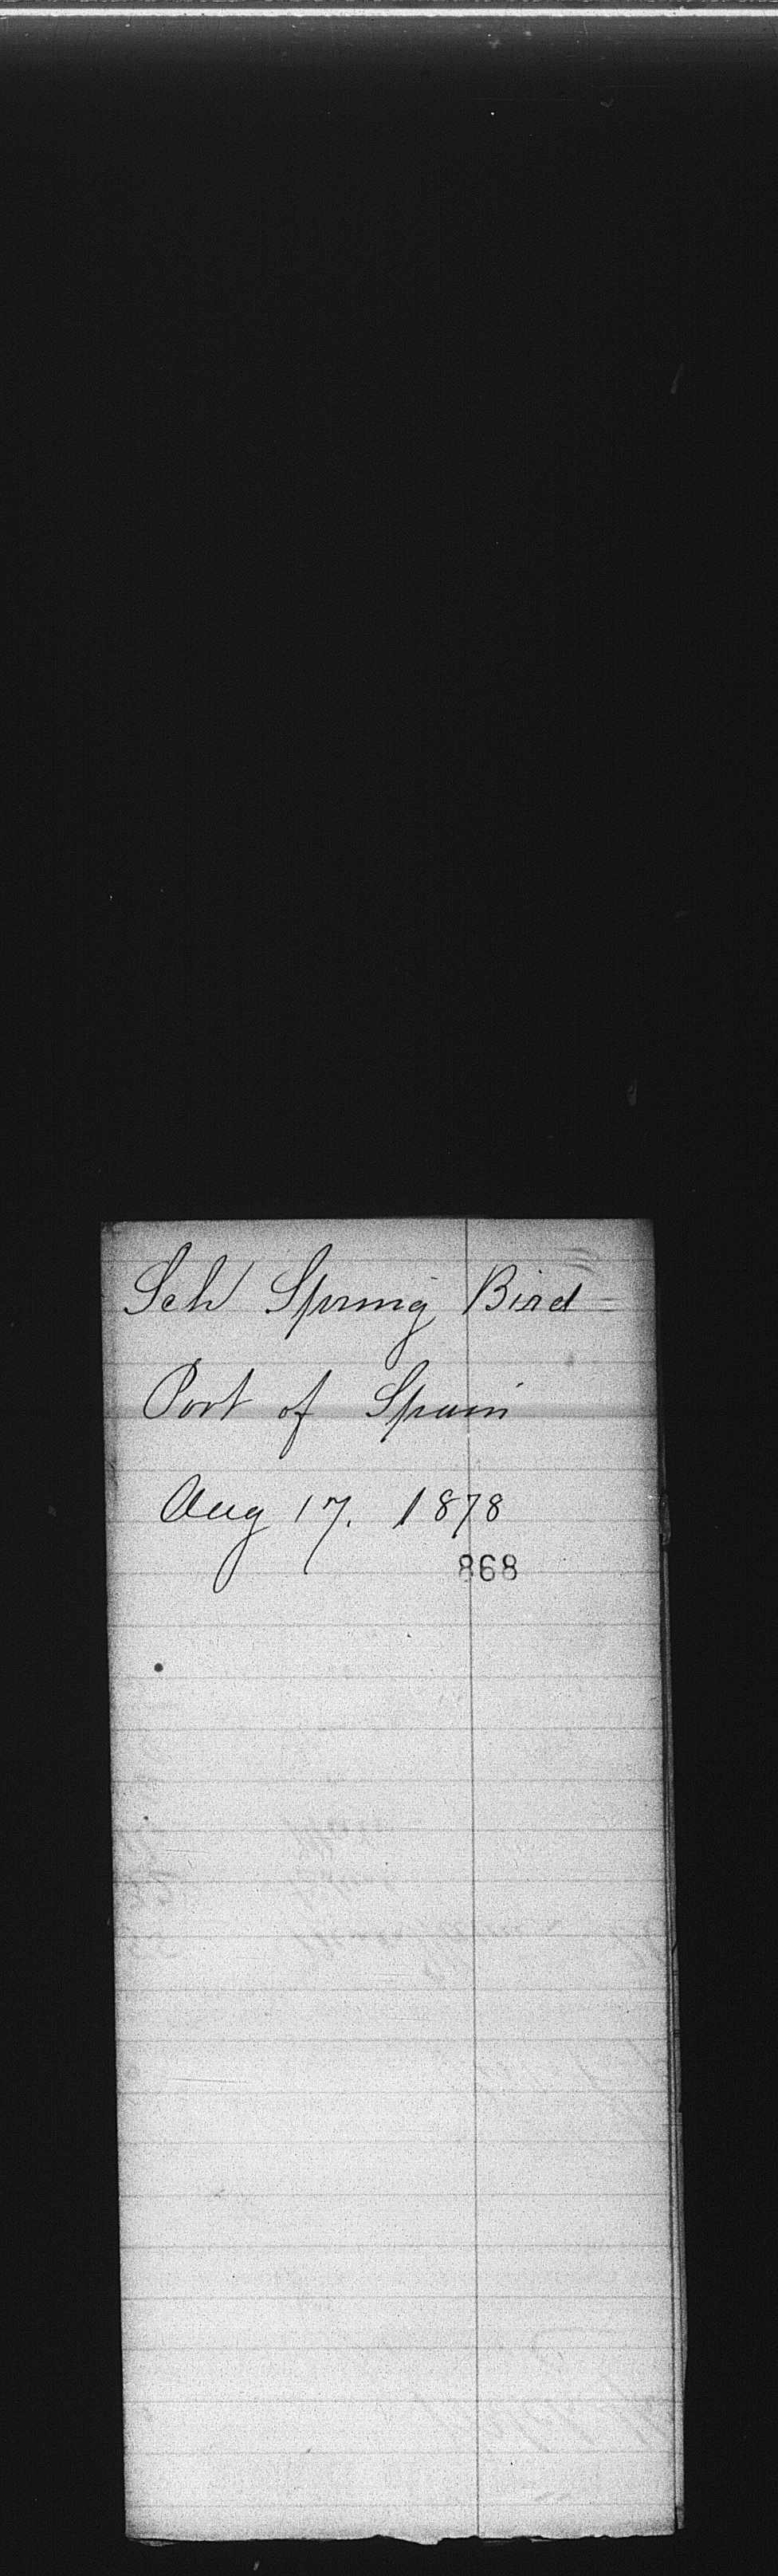 Sch Spring Bird
Port of Spain
Aug 17. 1878
868